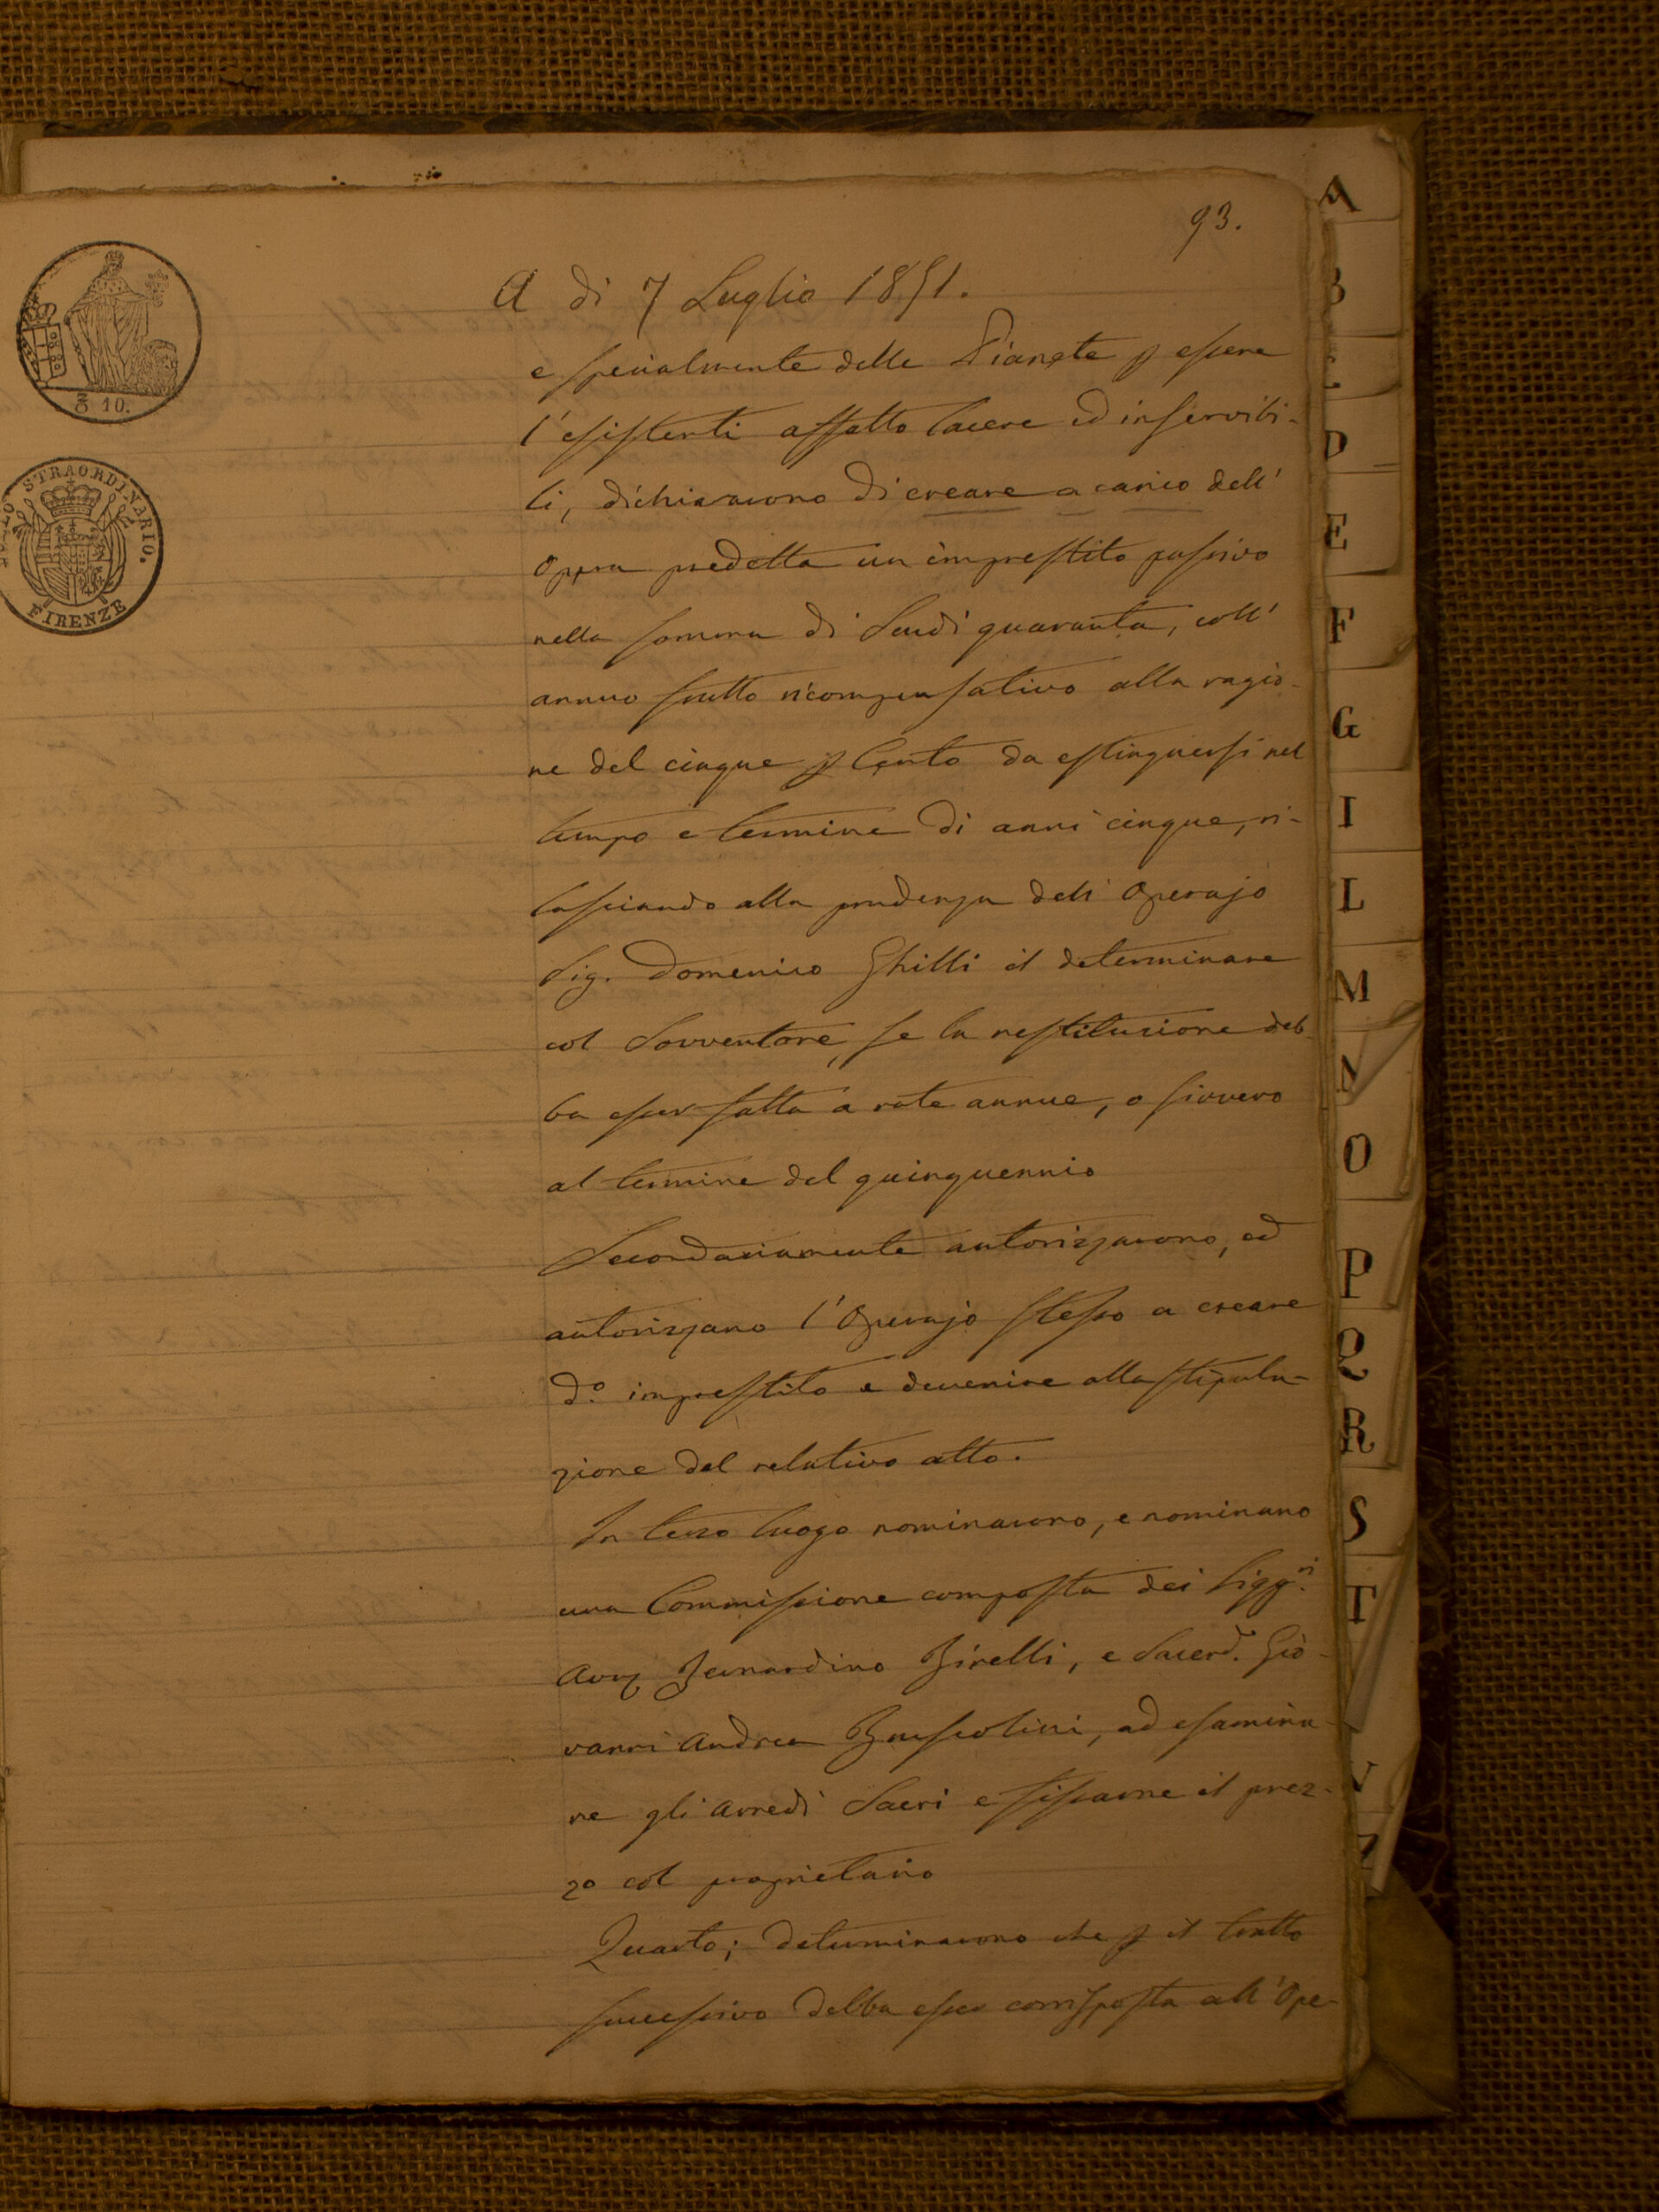 93.
A dì 7 Luglio 1851.
e specialmente delle Pianete p essere
l'esistenti affatto lacere ed inservibi-
li, dichiararono di creare a carico dell'
Opera predetta un imprestito passivo
nella somma di Scudi quaranta, coll'
annuo frutto ricompensativo alla ragio-
ne del cinque p Cento da estinguersi nel
tempo e termine di anni cinque, ri-
lasciando alla prudenza dell' Operajo
Sig. Domenico Ghilli il determinare
col Sovventore, se la restituzione deb-
ba esser fatta a rate annue, o sivvero
al termine del quinquennio
Secondariamente autorizzarono, ed
autorizzano l'Operajo stesso a creare
d.o imprestito e devenire alla stipula-
zione del relativo atto.
In terzo luogo nominarono, e nominano
una Commissione composta dei Sigg.ri
Bernardino Birelli, e Sacerd. Gio-
vanni Andrea Bruscolini, ad esamina-
re gli Arredi Sacri e fissarne il prez-
zo col proprietario
Quarto; determinarono che p il tratto
successivo debba esser corrisposta all'Ope-
10.
BOLLO STRAORDINARIO.
FIRENZE
A
B
C
D
E
F
G
I
L
M
N
O
P
Q
R
S
T
V
Z